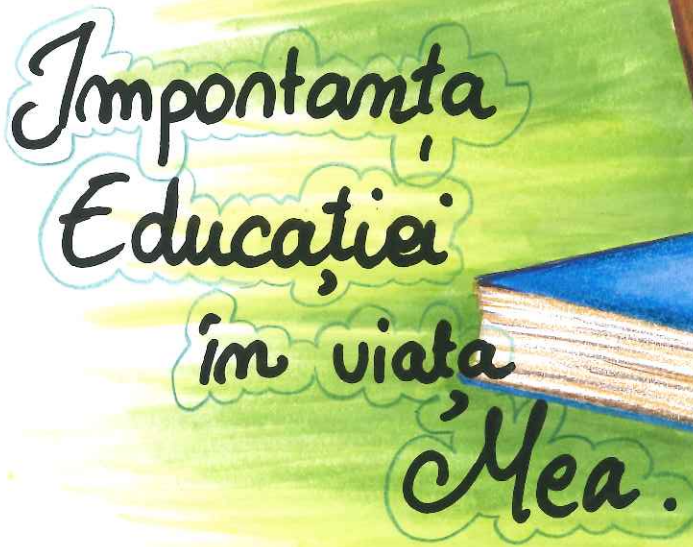 Importanța
Educației
în viața
Mea.